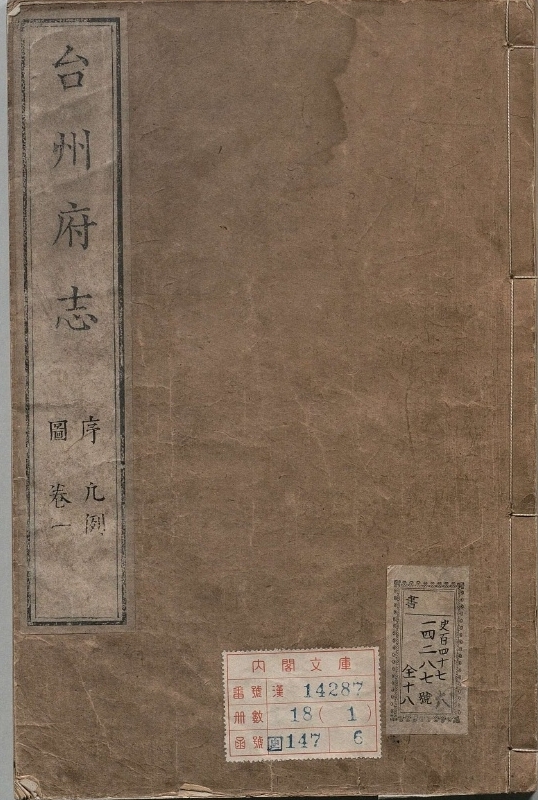 台州府志
序 凢例
圖 卷一
書
史百四十七
一四二八七號
全十八
內閣文庫
番號 漢 14287
冊數 18 ( 1 )
函號 147 6